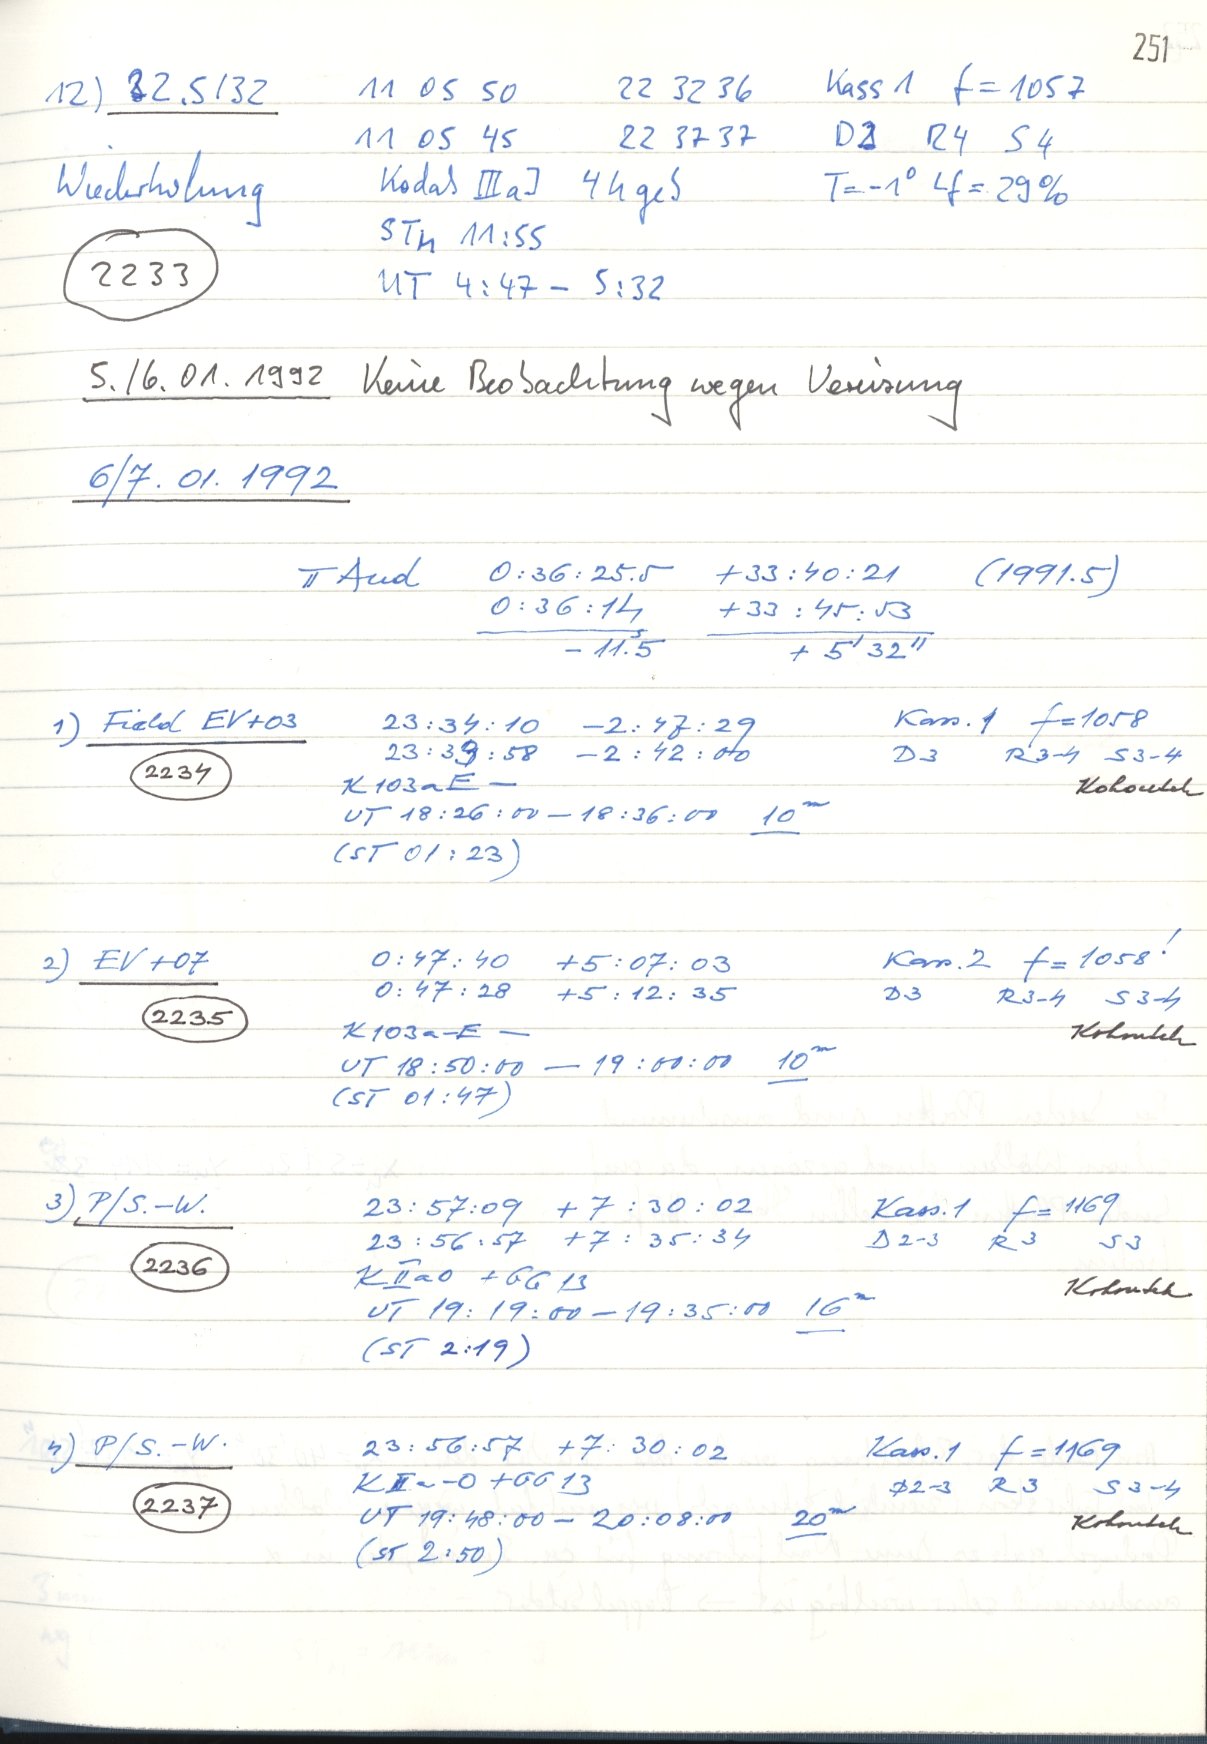 251
12) 32.5/32 11 05 50 22 32 36 Kass 1 f = 1057
11 05 45 22 37 37 D2 R4 S4
Wiederholung Kodak IIIaJ 4h geb T=-1° Lf = 29%
STM 11:55
2233
UT 4:47 – 5:32
5./6.01.1992 Keine Beobachtung wegen Vereisung
6/7.01.1992
π And 0:36:25.5 +33:40:21 (1991.5)
0:36:14 +33:45:53
-11.ˢ5 + 5' 32"
1) Field EV+03 23:34:10 -2:47:29 Kass.1 f=1058
23:33:58 -2:42:00 D3 R3-4 S3-4
2234 K103aE — Kohoutek
UT 18:26:00 – 18:36:00 10ᵐ
(ST 01:23)
2) EV+07 0:47:40 +5:07:03 Kass.2 f=1058!
0:47:28 +5:12:35 D3 R3-4 S3-4
2235 K103a-E — Kohoutek
UT 18:50:00 — 19:00:00 10ᵐ
(ST 01:47)
3) P/S.-W. 23:57:09 +7:30:02 Kass.1 f=1169
23:56:57 +7:35:34 D2-3 R3 S3
2236 KIIaO +GG13 Kohoutek
UT 19:19:00 – 19:35:00 16ᵐ
(ST 2:19)
4) P/S.-W. 23:56:57 +7:30:02 Kass.1 f=1169
KIIa-O +GG13 D2-3 R3 S3-4
2237 UT 19:48:00 – 20:08:00 20ᵐ Kohoutek
(ST 2:50)